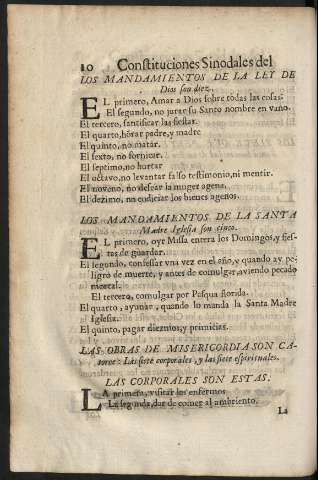 10 Constituciones Sinodales del
LOS MANDAMIENTOS DE LA LEY DE
Dios son diez.
EL primero, Amar a Dios sobre todas las cosas.
El segundo, no jurar su Santo nombre en vano.
El tercero, santificar las fiestas.
El quarto, hórar padre, y madre
El quinto, no matar.
El sexto, no fornicar.
El septimo, no hurtar
El octavo, no levantar falso testimonio, ni mentir.
El noveno, no desear la muger agena.
El dezimo, no cudiciar los bienes agenos.
LOS MANDAMIENTOS DE LA SANTA
Madre Iglesia son cinco.
EL primero, oyr Missa entera los Domingos, y fies-
tas de guardar.
El segundo, confessar vna vez en el año, y quando ay pe-
ligro de muerte, y antes de comulgar, aviendo pecado
mortal.
El tercero, comulgar por Pasqua florida.
El quarto, ayunar, quando lo manda la Santa Madre
Iglesia.
El quinto, pagar diezmos, y primicias.
LAS OBRAS DE MISERICORDIA SON CA-
torce: Las siete corporales, y las siete espirituales.
LAS CORPORALES SON ESTAS.
LA primera, visitar los enfermos.
La segunda, dar de comer al ambriento.
La